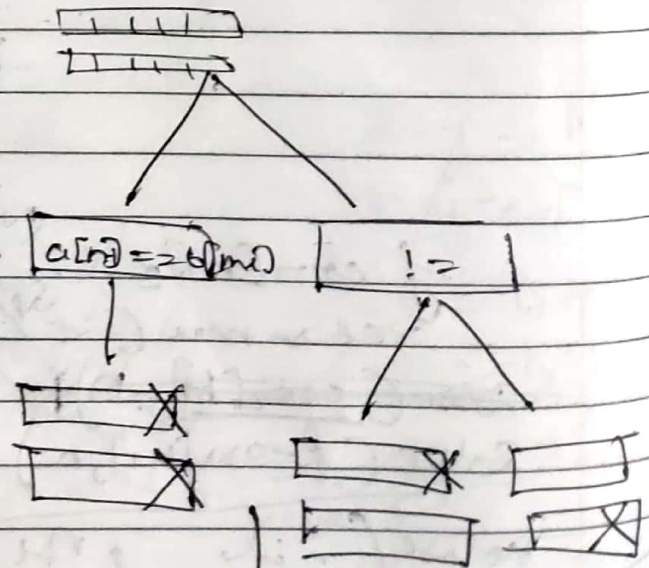 a[n] == b[m]
!=